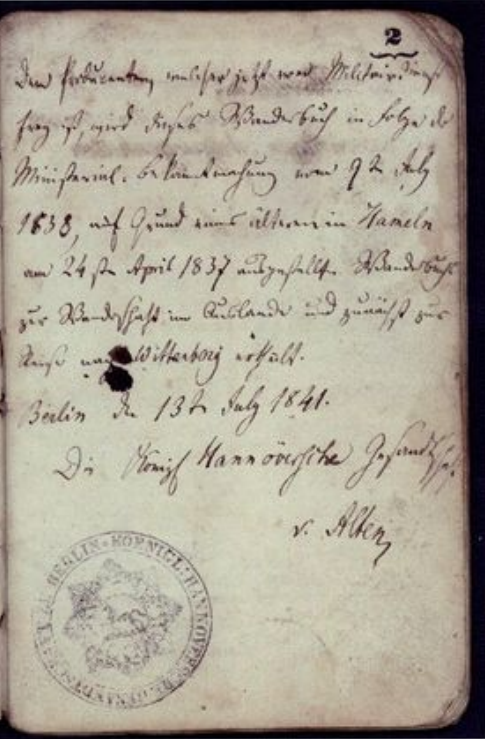 2
Dem Producenten, welcher jetzt vom Militairdienst
frey ist, wird dieses Wanderbuch in Folge der
Ministerial-Bekanntmachung vom 9ten July
1838, auf Grund eines älteren in Hameln
am 24sten April 1837 ausgestellten Wanderbuchs
zur Wanderschaft im Auslande und zunächst zur
Reise nach Wittenberg ertheilt.
Berlin den 13ten July 1841.
Die Königl Hannöversche Gesandtschaft.
v. Alten
KOENIGL: HANNOVERSCHE GESANDTSCHAFT ZU BERLIN